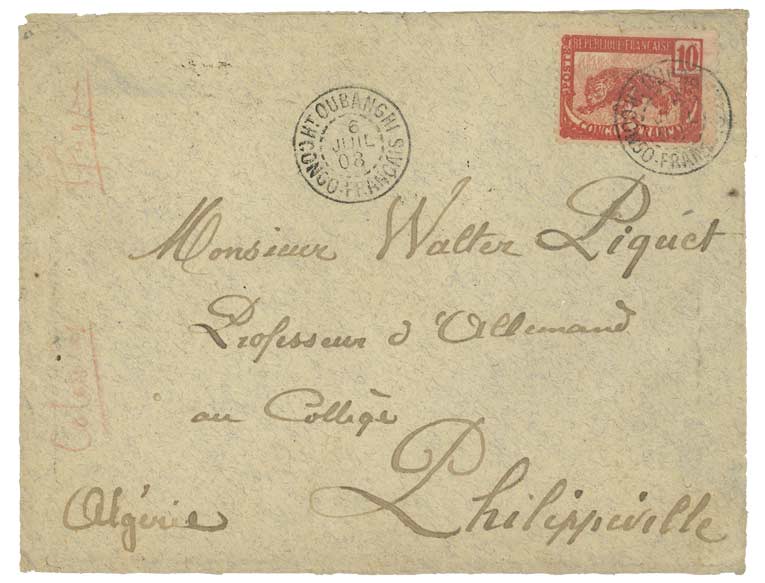 RÉPUBLIQUE FRANÇAISE
10
POSTES
CONGO FRANÇAIS
HT OUBANGHI S
6
JUIL
08
CONGO-FRANCAIS
CONGO-FRANC
Monsieur Walter Piquet
Professeur d'Allemand
au Collège
Philippeville
Algérie